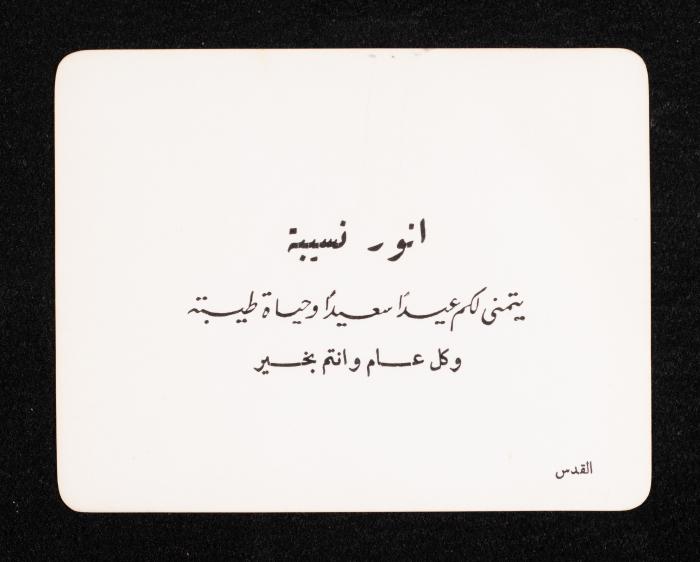 انور نسيبة
يتمنى لكم عيداً سعيداً وحياة طيبة
وكل عام وانتم بخير
القدس